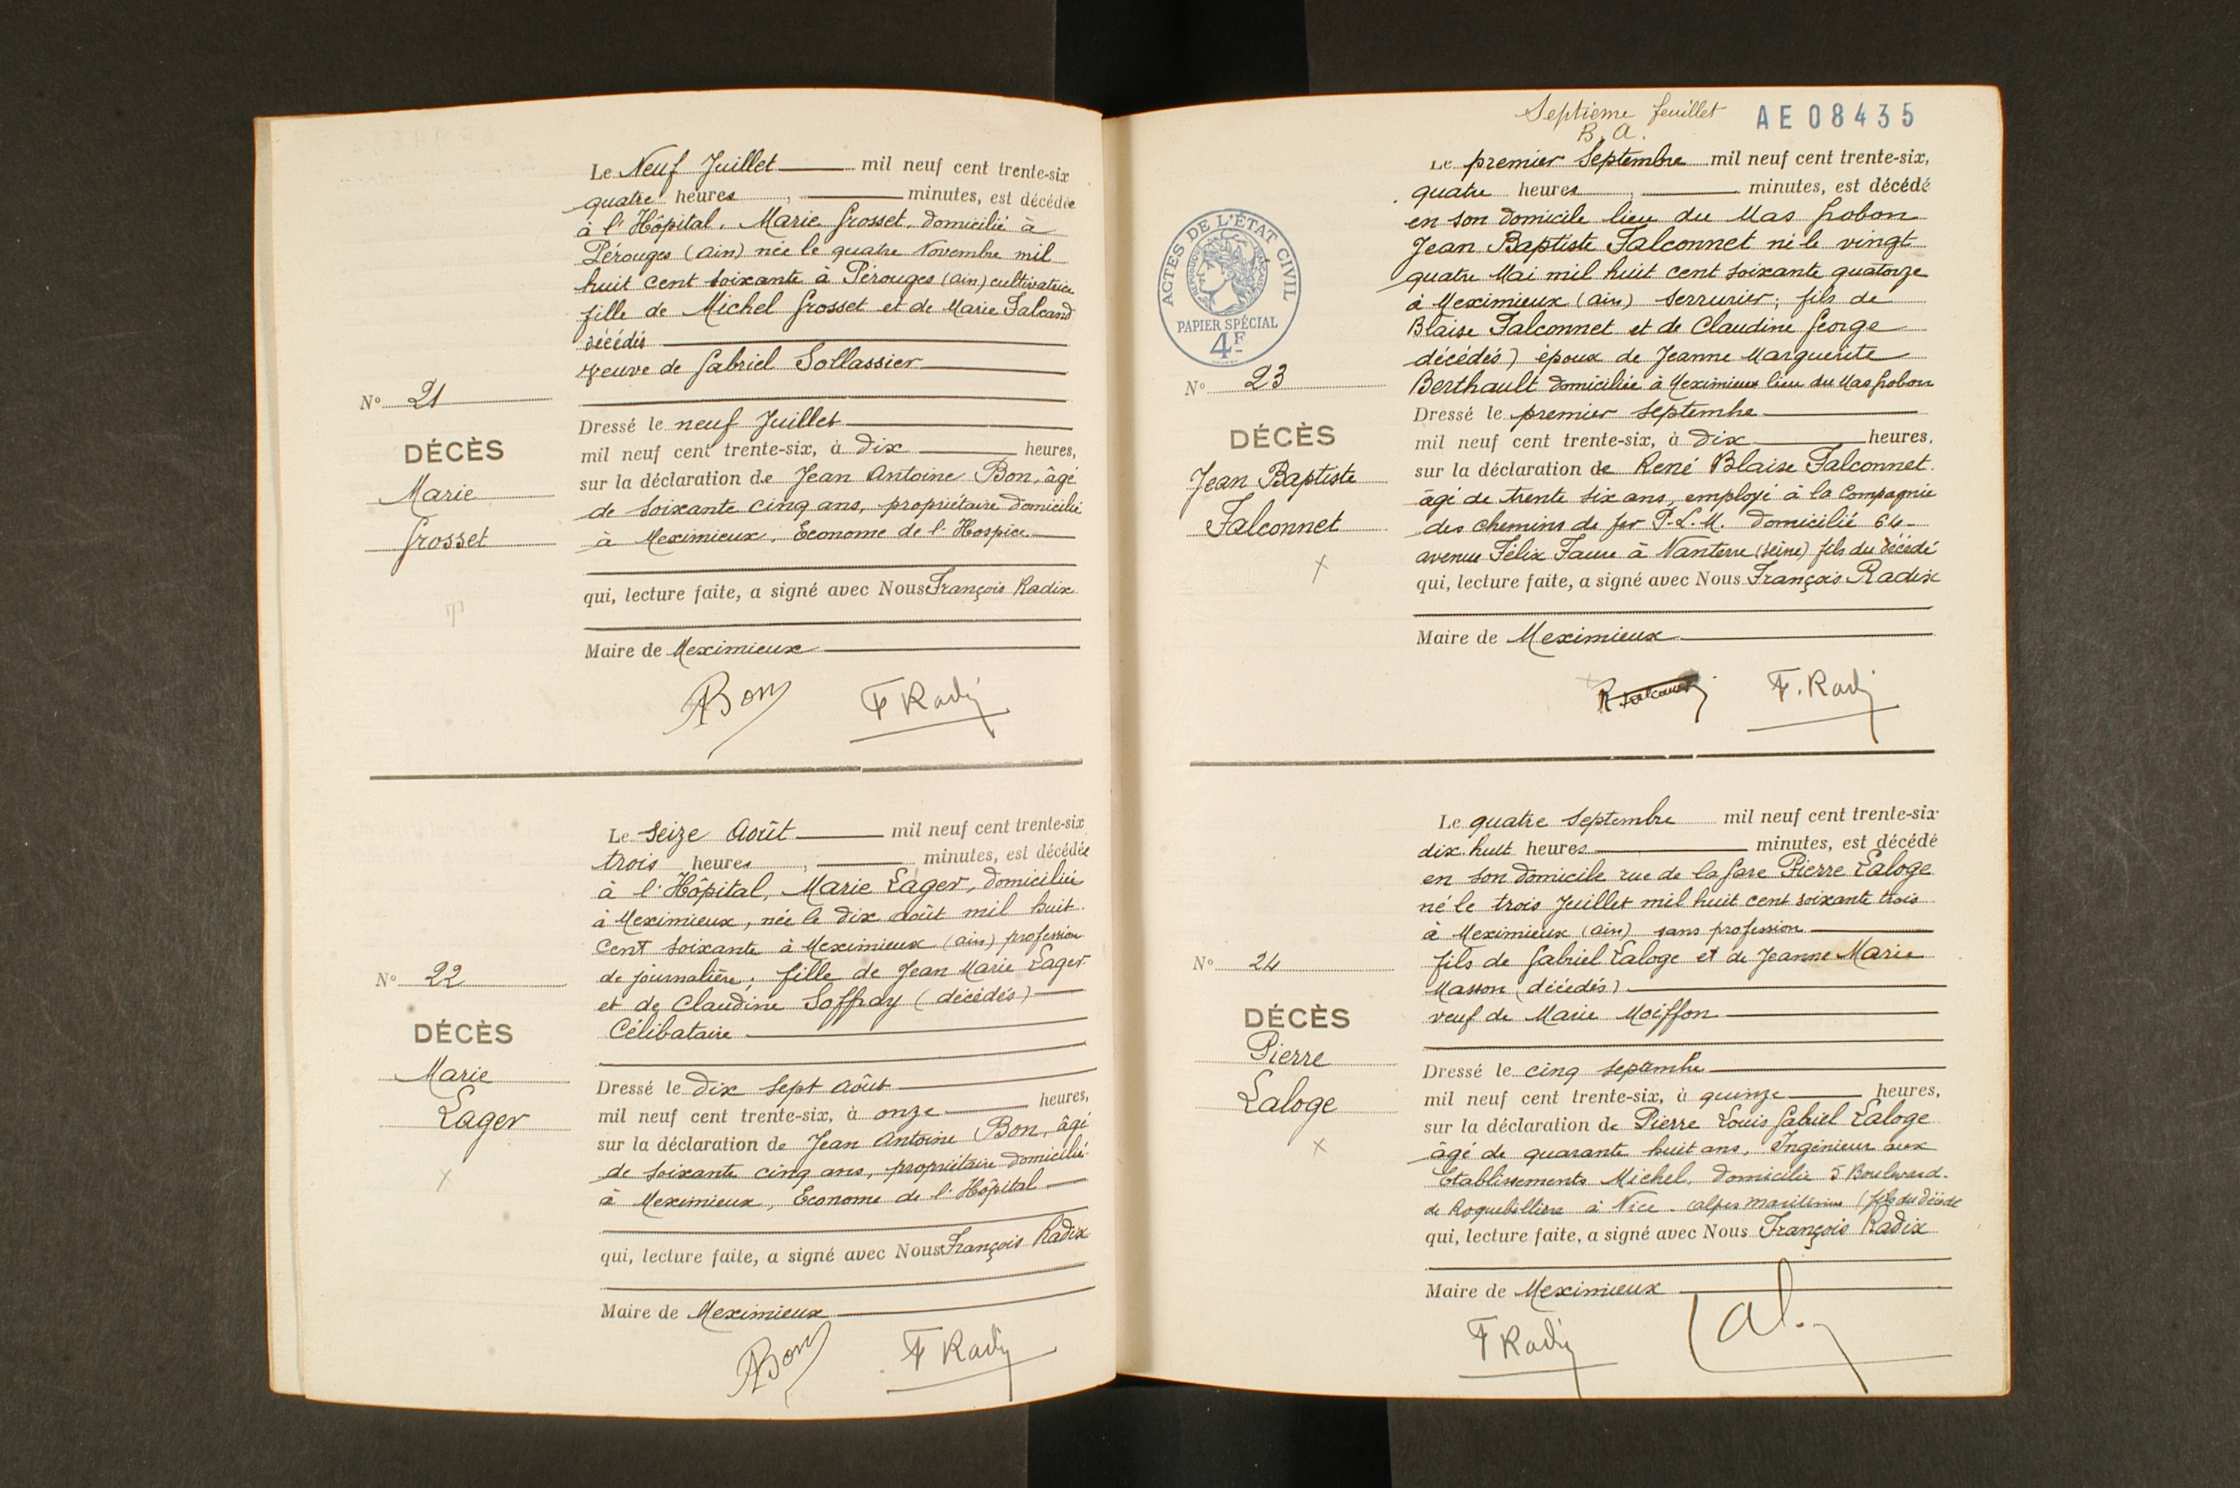 Le Neuf Juillet mil neuf cent trente-six
quatre heures, minutes, est décédée
à l'Hôpital. Marie Grosset, domicilié à
Pérouges (Ain) née le quatre Novembre mil
huit cent soixante à Pérouges (Ain) cultivatrice
fille de Michel Grosset et de Marie Falcand
décédés
veuve de Gabriel Sollassier
N° 21
DÉCÈS
Marie
Grosset
Dressé le neuf Juillet
mil neuf cent trente-six, à dix heures,
sur la déclaration de Jean Antoine Bon, âgé
de soixante cinq ans, propriétaire domicilié
à Meximieux, Econome de l'Hospice
qui, lecture faite, a signé avec Nous François Radix
Maire de Meximieux
ABon F Radix
Le Seize Août mil neuf cent trente-six
trois heures, minutes, est décédée
à l'Hôpital, Marie Lager, domiciliée
à Meximieux, née le dix août mil huit
cent soixante à Meximieux (ain) profession
de journalière; fille de Jean Marie Lager
et de Claudine Soffray (décédés)
Célibataire
N° 22
DÉCÈS
Marie
Lager
Dressé le dix sept août
mil neuf cent trente-six, à onze heures,
sur la déclaration de Jean Antoine Bon, âgé
de soixante cinq ans, propriétaire domicilié
à Meximieux, Econome de l'Hôpital
qui, lecture faite, a signé avec Nous François Radix
Maire de Meximieux
ABon F Radix
Septieme feuillet
B. A.
AE08435
ACTES DE L'ÉTAT CIVIL
PAPIER SPÉCIAL
4F
Le premier Septembre mil neuf cent trente-six,
quatre heures, minutes, est décédé
en son domicile lieu du Mas Gobon
Jean Baptiste Falconnet né le vingt
quatre Mai mil huit cent soixante quatorze
à Meximieux (ain) serrurier; fils de
Blaise Falconnet et de Claudine George
décédés) époux de Jeanne Marguerite
Berthault domiciliée à Meximieux lieu du Mas Gobon
N° 23
DÉCÈS
Jean Baptiste
Falconnet
Dressé le premier septembre
mil neuf cent trente-six, à dix heures,
sur la déclaration de René Blaise Falconnet
âgé de trente six ans, employé à la Compagnie
des chemins de fer P.L.M. domicilié 64
avenue Félix Faure à Nanterre (seine) fils du décédé
qui, lecture faite, a signé avec Nous François Radix
Maire de Meximieux
R Falconnet F. Radix
Le quatre septembre mil neuf cent trente-six
dix huit heures minutes, est décédé
en son domicile rue de la Gare Pierre Laloge
né le trois Juillet mil huit cent soixante trois
à Meximieux (ain) sans profession
fils de Gabriel Laloge et de Jeanne Marie
Masson (décédés)
veuf de Marie Moiffon
N° 24
DÉCÈS
Pierre
Laloge
Dressé le cinq septembre
mil neuf cent trente-six, à quinze heures,
sur la déclaration de Pierre Louis Gabriel Laloge
âgé de quarante huit ans, Ingénieur aux
Etablissements Michel, domicilié 5 Boulevard
de Roquebillière à Nice. alpes maritimes (fils du décédé
qui, lecture faite, a signé avec Nous François Radix
Maire de Meximieux
F Radix